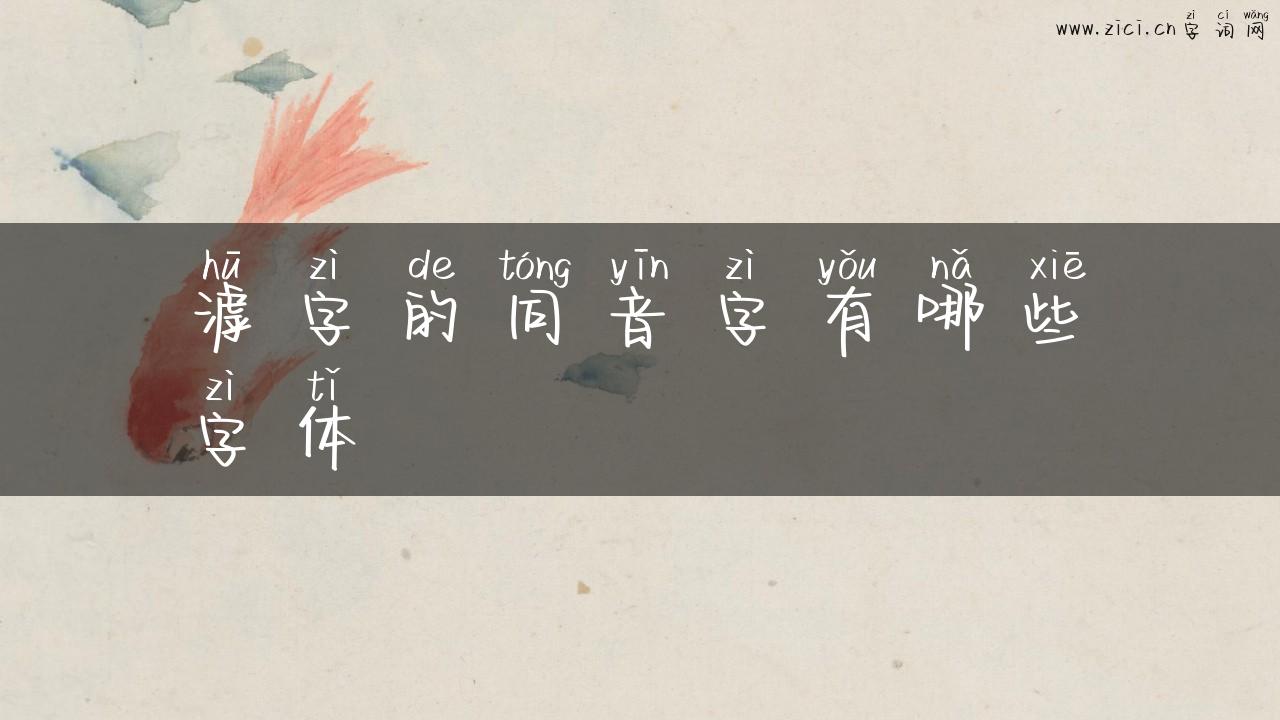 zì cí wǎng
www.zici.cn字词网
hū zì de tóng yīn zì yǒu nǎ xiē
滹字的同音字有哪些
zì tǐ
字体